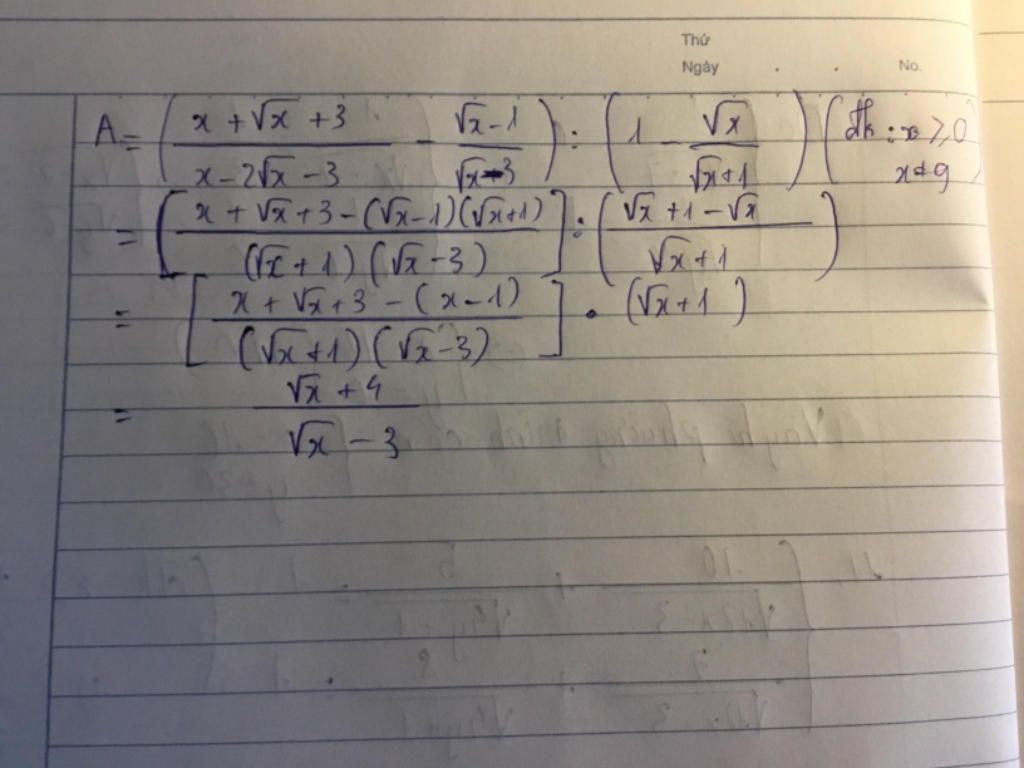 Thứ
Ngày . . No.
A = ( (x + √x + 3)/(x - 2√x - 3) - (√x - 1)/(√x - 3) ) : ( 1 - √x/(√x + 1) ) ( đk : x ≥ 0 x ≠ 9 )
= [ (x + √x + 3 - (√x - 1)(√x + 1))/((√x + 1)(√x - 3)) ] : ( (√x + 1 - √x)/(√x + 1) )
= [ (x + √x + 3 - (x - 1))/((√x + 1)(√x - 3)) ] . (√x + 1)
= (√x + 4)/(√x - 3)